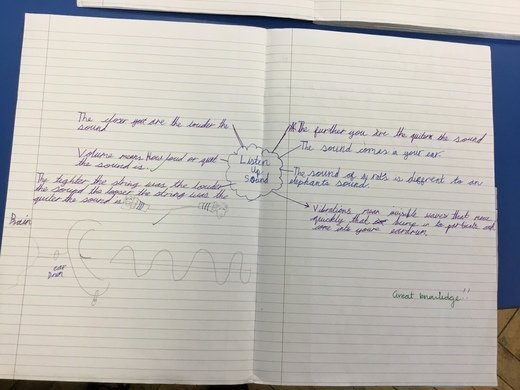 The closer you are the louder the
sound
Volume means How loud or quiet
the sound is.
The tighter the string was the louder
the sound the looser the string was the
quiter the sound is
Brain
ear
Drum
Listen
Up
Sound
The further you are the quiters the sound
The sound comes a your ear.
The sound of is different to an
elephants sound.
Vibrations mean invisible waves that move
quickly that bump in to particals and
come into youre eardrum
Great knowledge!!